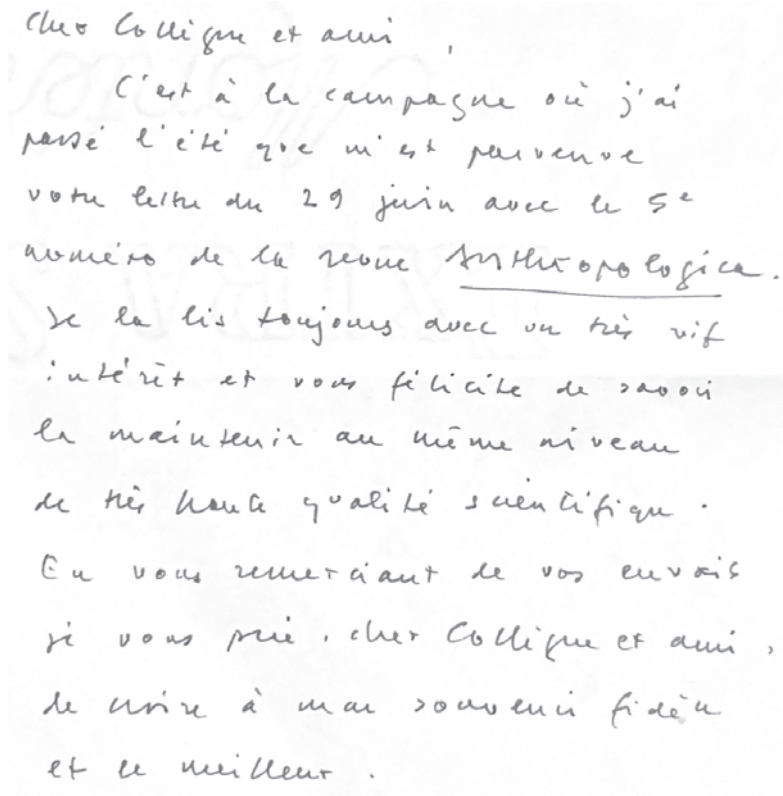 Cher Collègue et ami,
C'est à la campagne où j'ai
passé l'été que m'est parvenue
votre lettre du 29 juin avec le 5e
numéro de la revue Anthropologica.
Je la lis toujours avec un très vif
intérêt et vous félicite de savoir
la maintenir au même niveau
de très haute qualité scientifique.
En vous remerciant de vos envois
je vous prie, cher Collègue et ami,
de croire à mon souvenir fidèle
et le meilleur.